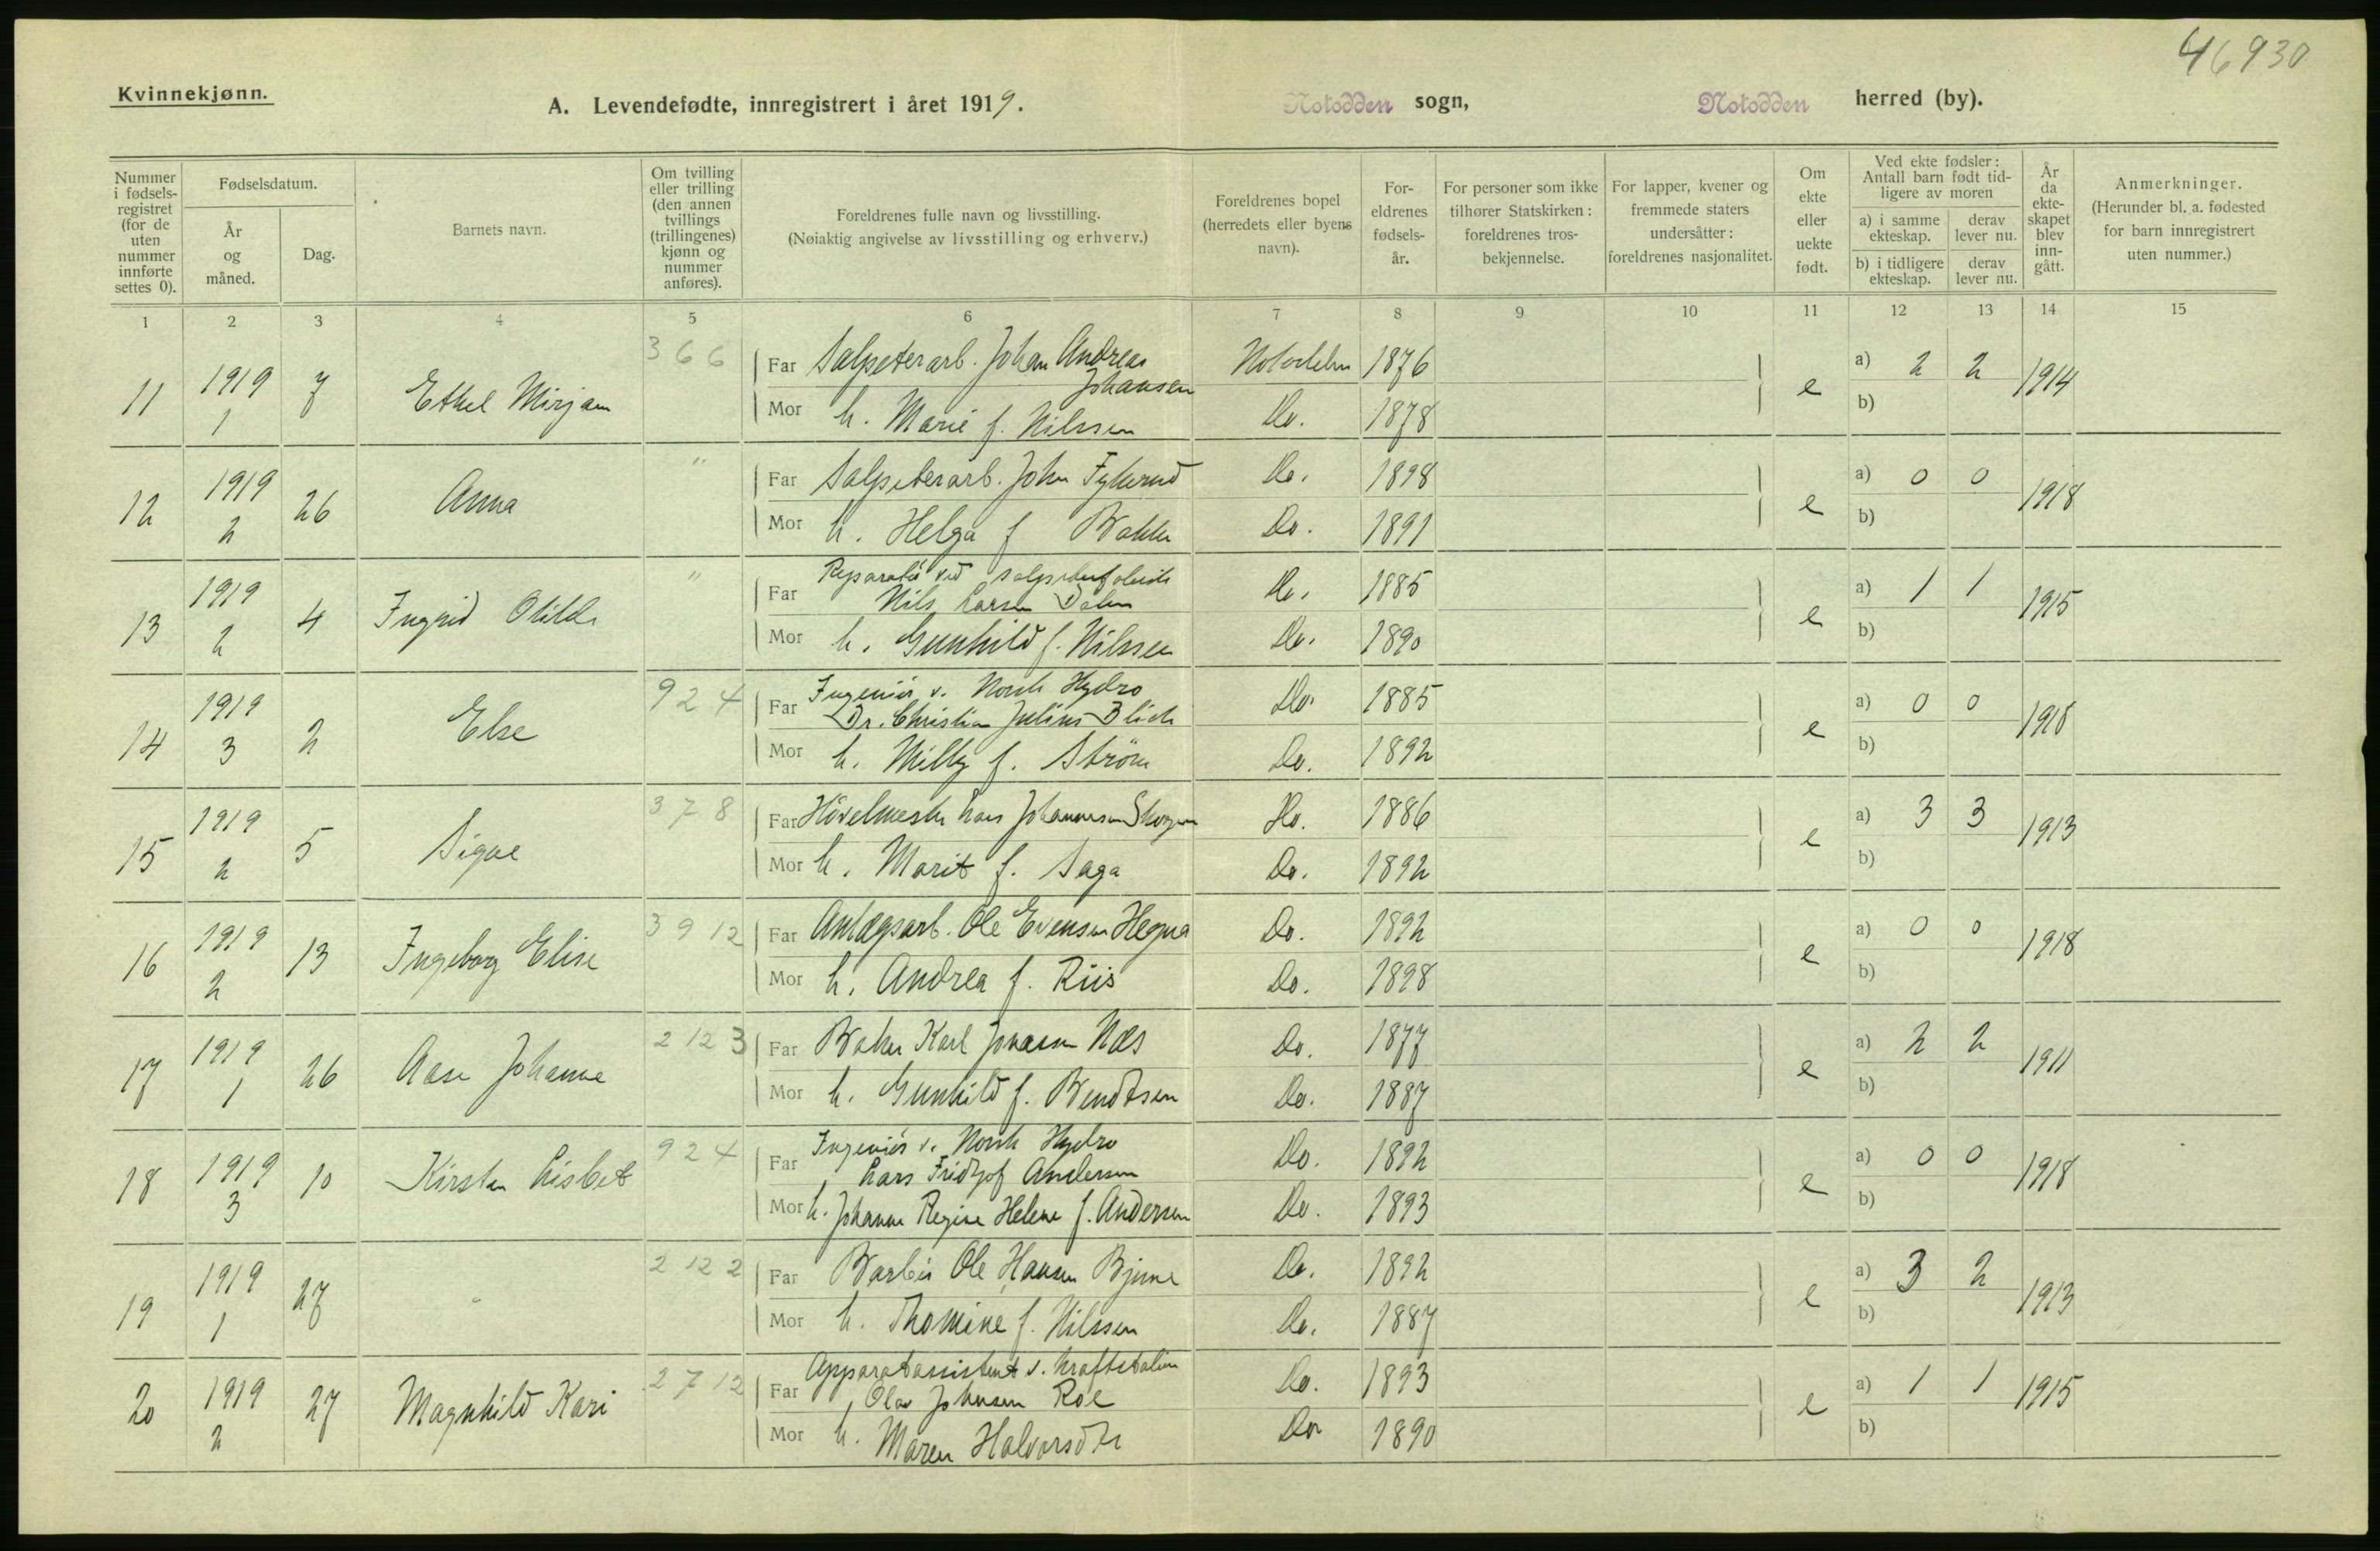 46930
Kvinnekjønn.
A. Levendefødte, innregistrert i året 1919.
Notodden sogn,
Notodden herred (by).
Nummer i fødsels-registret (for de uten nummer innførte settes 0).
Fødselsdatum.
År og måned.
Dag.
Barnets navn.
Om tvilling eller trilling (den annen tvillings (trillingenes) kjønn og nummer anføres).
Foreldrenes fulle navn og livsstilling.
(Nøiaktig angivelse av livsstilling og erhverv.)
Foreldrenes bopel (herredets eller byens navn).
For-eldrenes fødsels-år.
For personer som ikke tilhører Statskirken: foreldrenes tros-bekjennelse.
For lapper, kvener og fremmede staters undersåtter: foreldrenes nasjonalitet.
Om ekte eller uekte født.
Ved ekte fødsler: Antall barn født tid-ligere av moren
a) i samme ekteskap.
derav lever nu.
b) i tidligere ekteskap.
derav lever nu.
År da ekte-skapet blev inn-gått.
Anmerkninger.
(Herunder bl. a. fødested for barn innregistrert uten nummer.)
1 2 3 4 5 6 7 8 9 10 11 12 13 14 15
366
11 1919 1 7 Ethel Mirjam Far Salpeterarb. Johan Andreas Johansen Notodden 1876 e a) 2 2 1914
Mor h. Marie f. Nilssen Do. 1878 b)
"
12 1919 2 26 Anna Far Salpeterarb. John Do. 1898 e a) 0 0 1918
Mor h. Helga f Do. 1891 b)
"
13 1919 2 4 Ingrid Far Reparatør ved Nils Larsen Do. 1885 e a) 1 1 1915
Mor h. Gunhild f. Nilssen Do. 1890 b)
924
14 1919 3 2 Else Far Ingeniør v. Norsk Hydro
Dr. Christian Julius Blich Do. 1885 e a) 0 0 1918
Mor h. Milly f. Ström Do. 1892 b)
378
15 1919 2 5 Signe Far Høvelmester Lars Johannesen Do. 1886 e a) 3 3 1913
Mor h. Marit f. Saga Do. 1892 b)
3912
16 1919 2 13 Ingeborg Elise Far Anlægsarb. Ole Evensen Hegna Do. 1892 e a) 0 0 1918
Mor h. Andrea f. Riis Do. 1898 b)
2123
17 1919 1 26 Aase Johanne Far Baker Karl Næs Do. 1877 e a) 2 2 1911
Mor h. Gunhild f. Bendtsen Do. 1887 b)
924
18 1919 3 10 Kirsten Lisbet Far Ingeniør v. Norsk Hydro
Lars Fridtjof Andersen Do. 1892 e a) 0 0 1918
Mor h. Johanne Regine Helene f. Andersen Do. 1893 b)
2122
19 1919 1 27 Far Barbér Ole Hansen Do. 1892 e a) 3 2 1913
Mor h. Thomine f. Nilssen Do. 1887 b)
2712
20 1919 2 27 Magnhild Kari Far Apparatassistent v. kraftstation
Olav Johnsen Roe Do. 1893 e a) 1 1 1915
Mor h. Maren Halvorsdtr Do 1890 b)